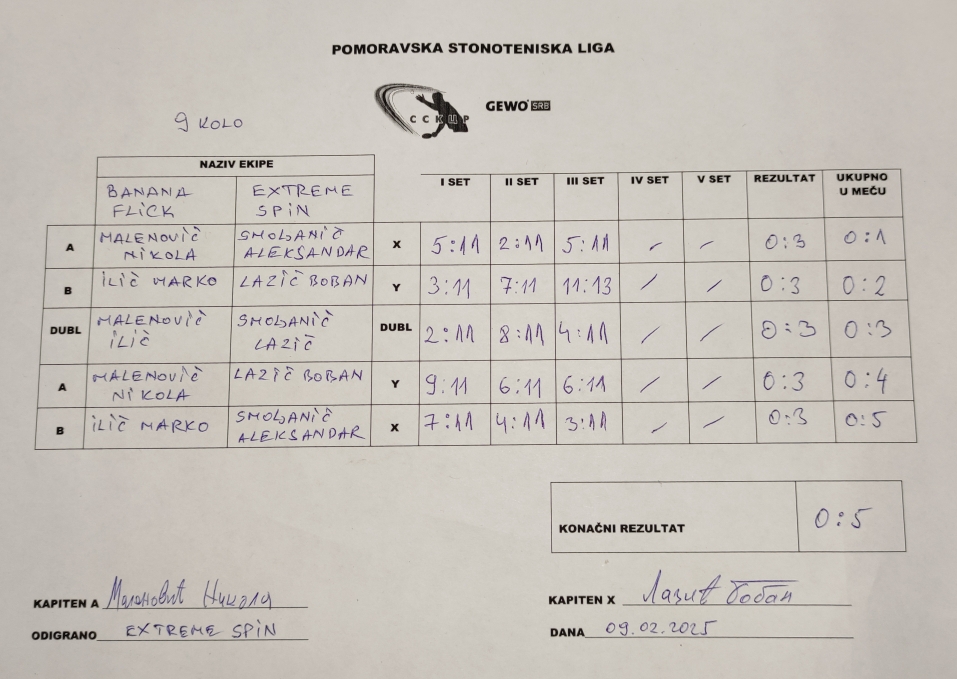 POMORAVSKA STONOTENISKA LIGA
ССКЦР
GEWO SRB
9 KOLO
NAZIV EKIPE
I SET II SET III SET IV SET V SET REZULTAT UKUPNO U MEČU
BANANA FLICK EXTREME SPIN
A MALENOVIČ NIKOLA SMOLJANIČ ALEKSANDAR X 5:11 2:11 5:11 / / 0:3 0:1
B ILIČ MARKO LAZIČ BOBAN Y 3:11 7:11 11:13 / / 0:3 0:2
DUBL MALENOVIČ ILIČ SMOLJANIČ LAZIČ DUBL 2:11 8:11 4:11 / / 0:3 0:3
A MALENOVIČ NIKOLA LAZIČ BOBAN Y 9:11 6:11 6:11 / / 0:3 0:4
B ILIČ MARKO SMOLJANIČ ALEKSANDAR X 7:11 4:11 3:11 / / 0:3 0:5
KONAČNI REZULTAT 0:5
KAPITEN A Маленовић Никола KAPITEN X Лазић Бобан
ODIGRANO EXTREME SPIN DANA 09.02.2025